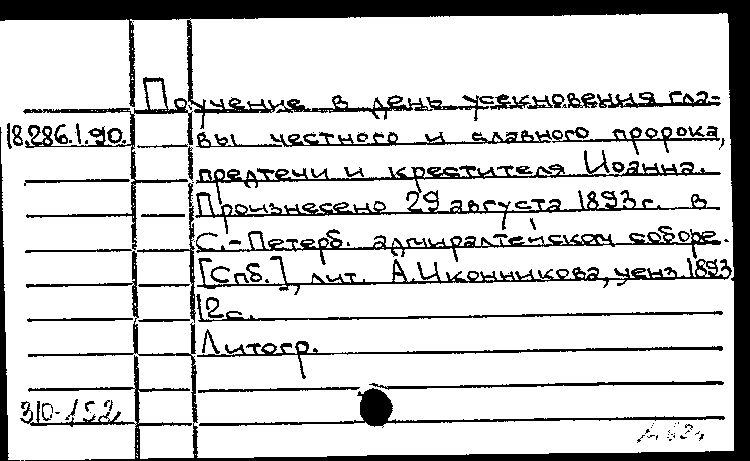 Поучение в день усекновения гла-
18.286.1.90. вы честного и славного пророка,
предтечи и крестителя Иоанна.
Произнесено 29 августа 1893 г. в
С.-Петерб. адмиралтейском соборе.
[Спб.], лит. А. Иконникова, ценз 1893
12 с.
Литогр.
310-152